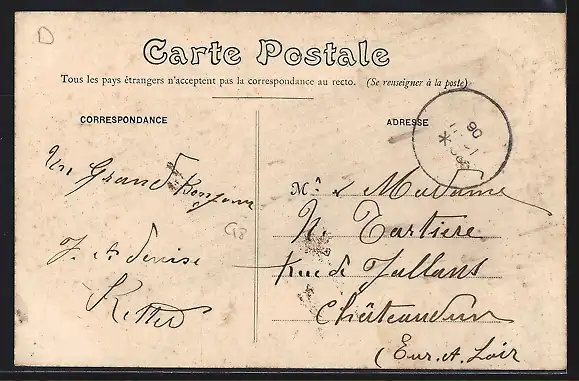 D
Carte Postale
Tous les pays étrangers n'acceptent pas la correspondance au recto. (Se renseigner à la poste)
CORRESPONDANCE
ADRESSE
Un Grand Bonjour
J. et Denise
M. & Madame
N. Tartiere
Rue de Jallans
Châteaudun
(Eur. et. Loir